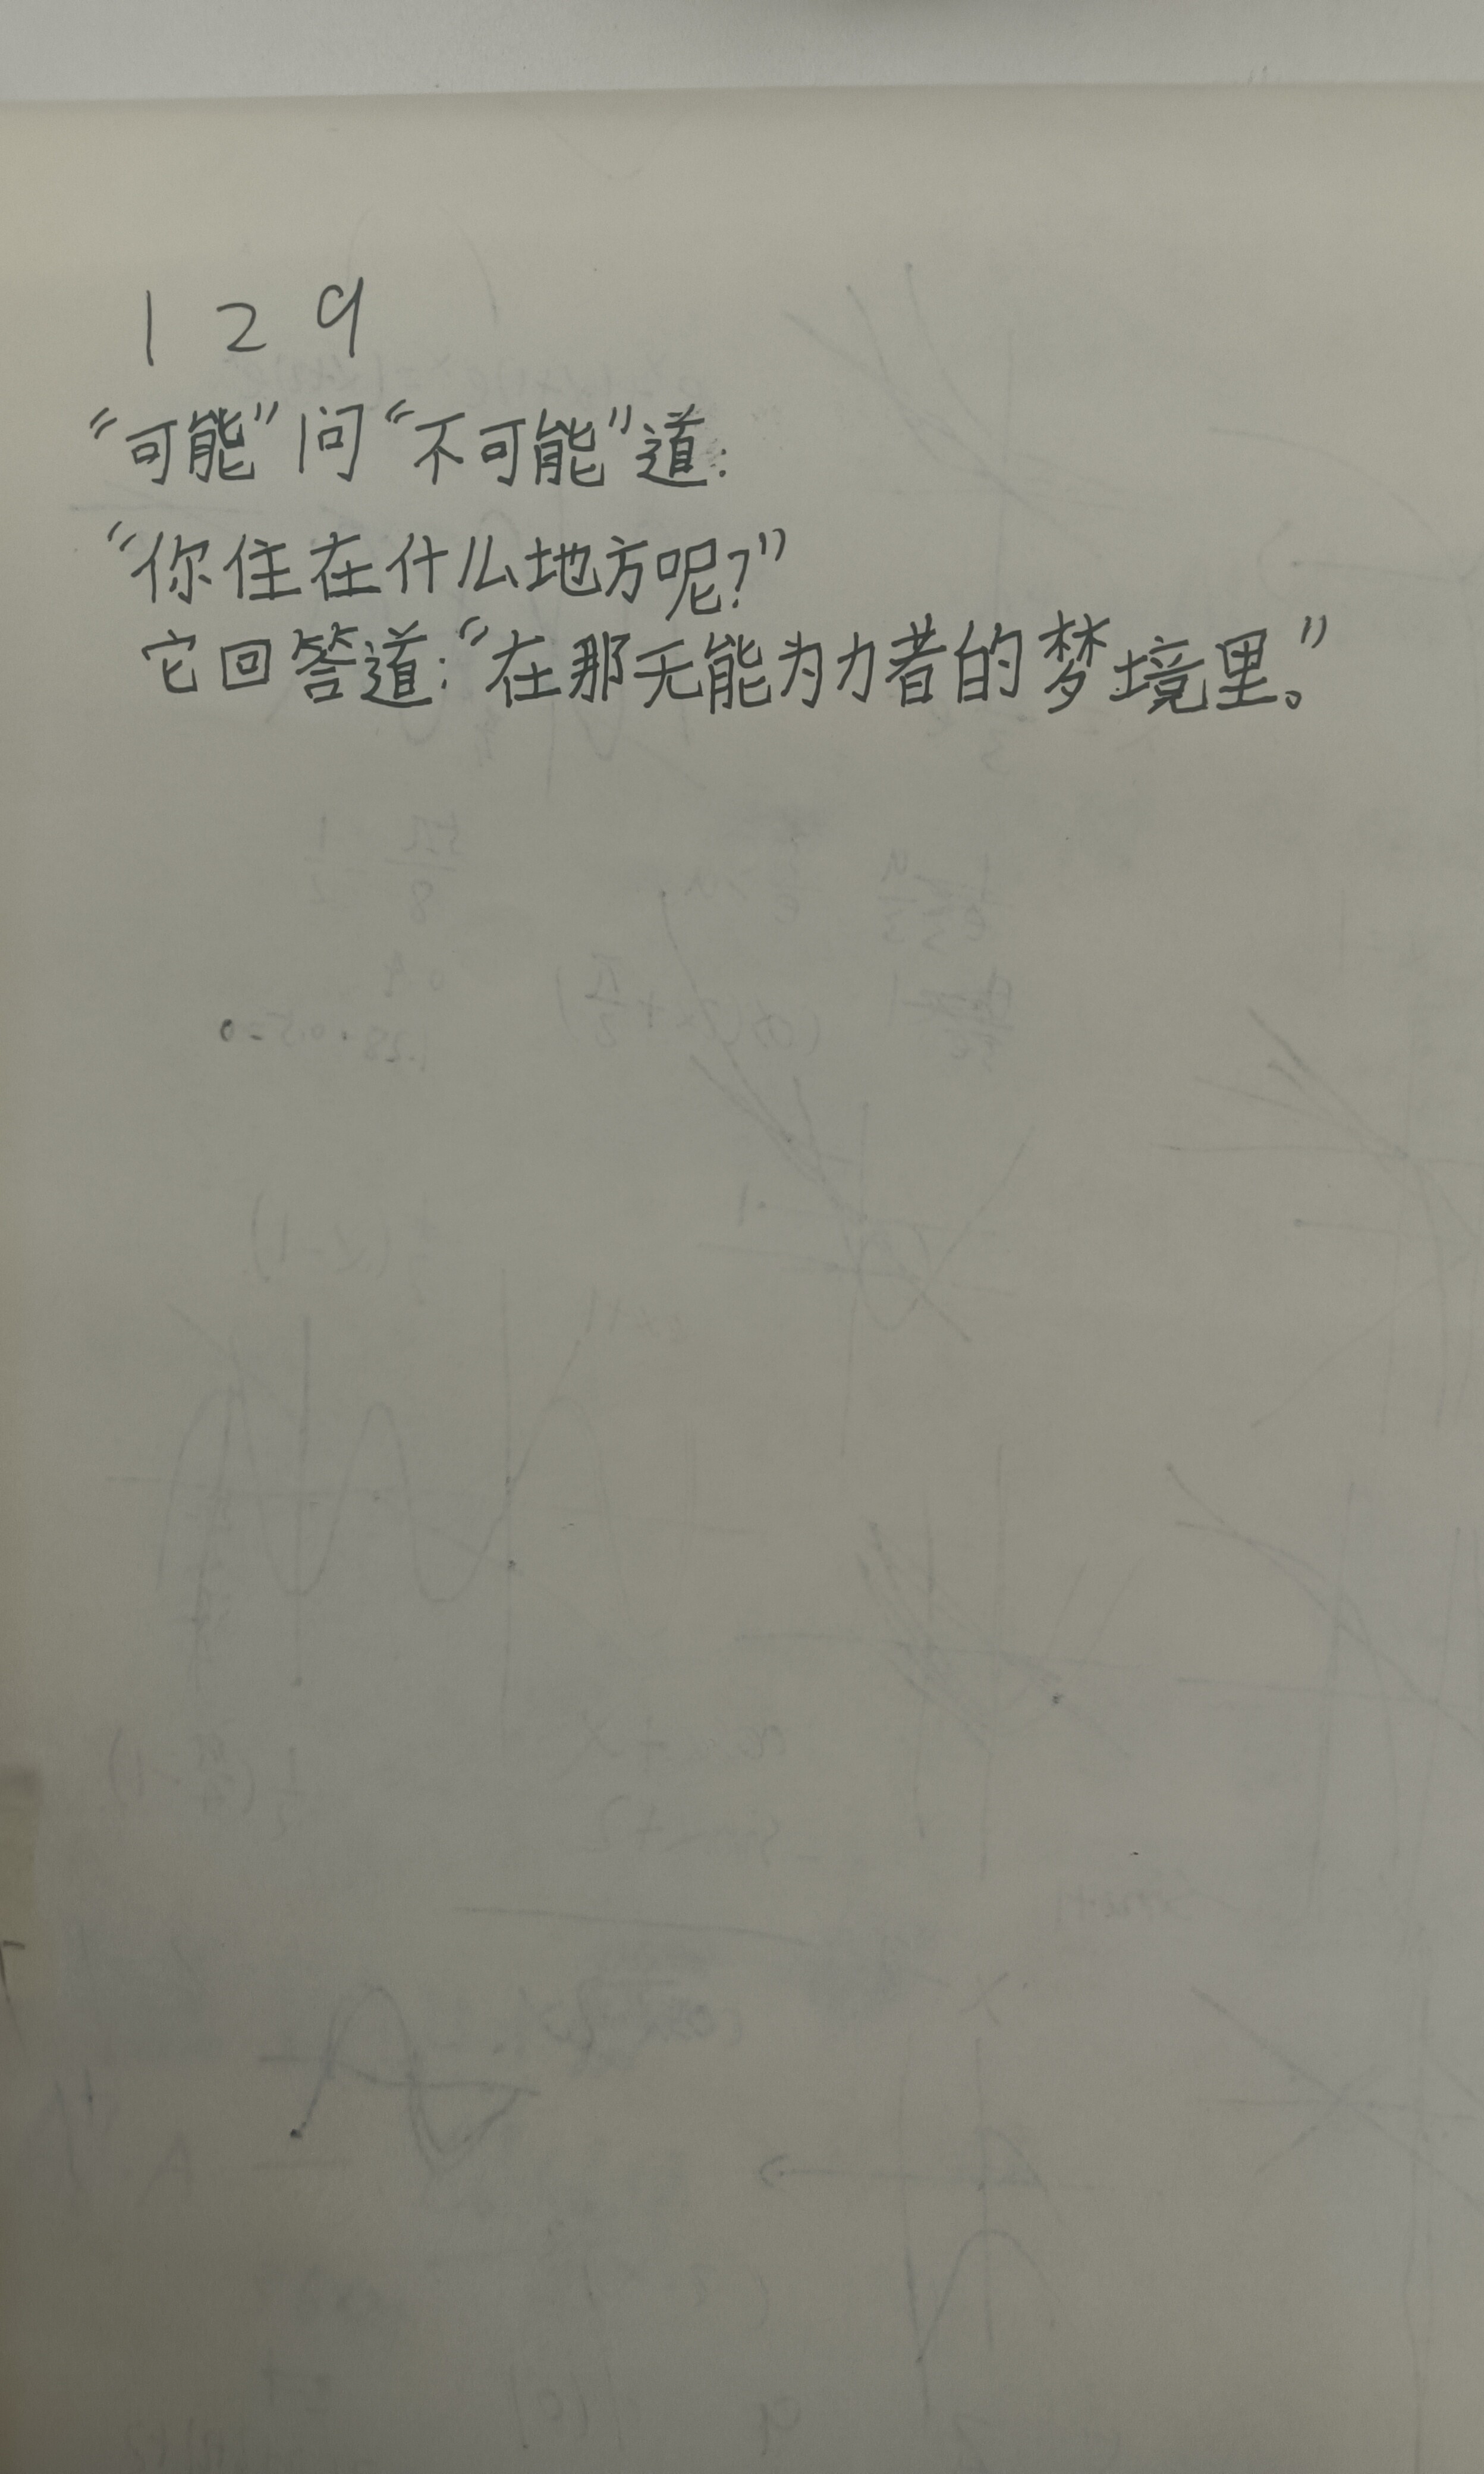 129
“可能”问“不可能”道:
“你住在什么地方呢?”
它回答道:“在那无能为力者的梦境里。”